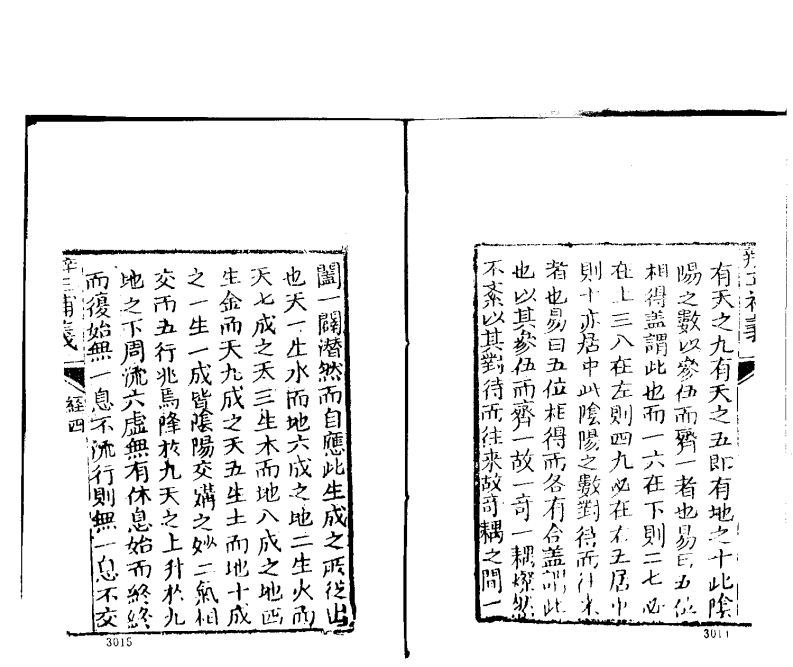 有天之九有天之五即有地之十此陰
陽之數以參伍而齊一者也易曰五位
相得盖謂此也而一六在下則二七必
在上三八在左則四九必在右五居中
則十亦居中此陰陽之數對待而往來
者也易曰五位相得而各有合盖謂此
也以其參伍而齊一故一奇一耦燦然
不紊以其對待而往來故奇耦之間一
3011
闔一闢潛然而自應此生成之所從出
也天一生水而地六成之地二生火而
天七成之天三生木而地八成之地四
生金而天九成之天五生土而地十成
之一生一成皆陰陽交媾之妙二氣相
交而五行兆焉降於九天之上升於九
地之下周流六虛無有休息始而終終
而復始無一息不流行則無一息不交
經四
3015